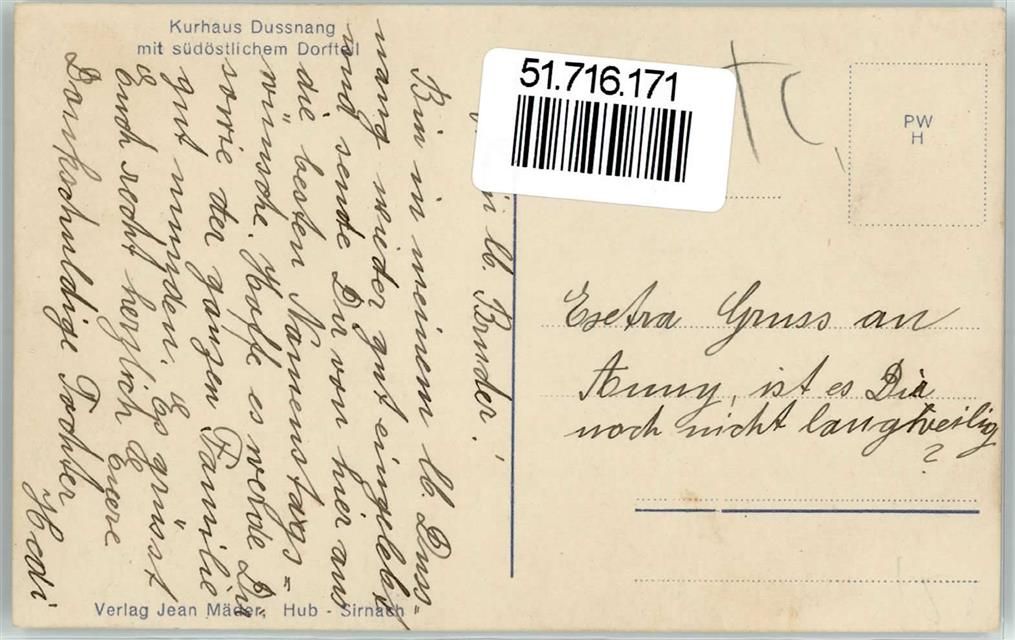 Kurhaus Dussnang
mit südöstlichem Dorfteil
51.716.171
PW
H
lb. Bruder!
Bin in meinem lb. Duss=
nang wieder gut eingelebt
und sende Dir von hier aus
die besten Namenstags=
wünsche. Hoffe es werde Dir
sowie der ganzen Familie
gut munden. Es grüsst
Euch recht herzlich Euere
Dankschuldige Tochter
Hedi
Exetra Gruss an
Anny, ist es Dir
noch nicht langweilig
?
Verlag Jean Mäder, Hub - Sirnach